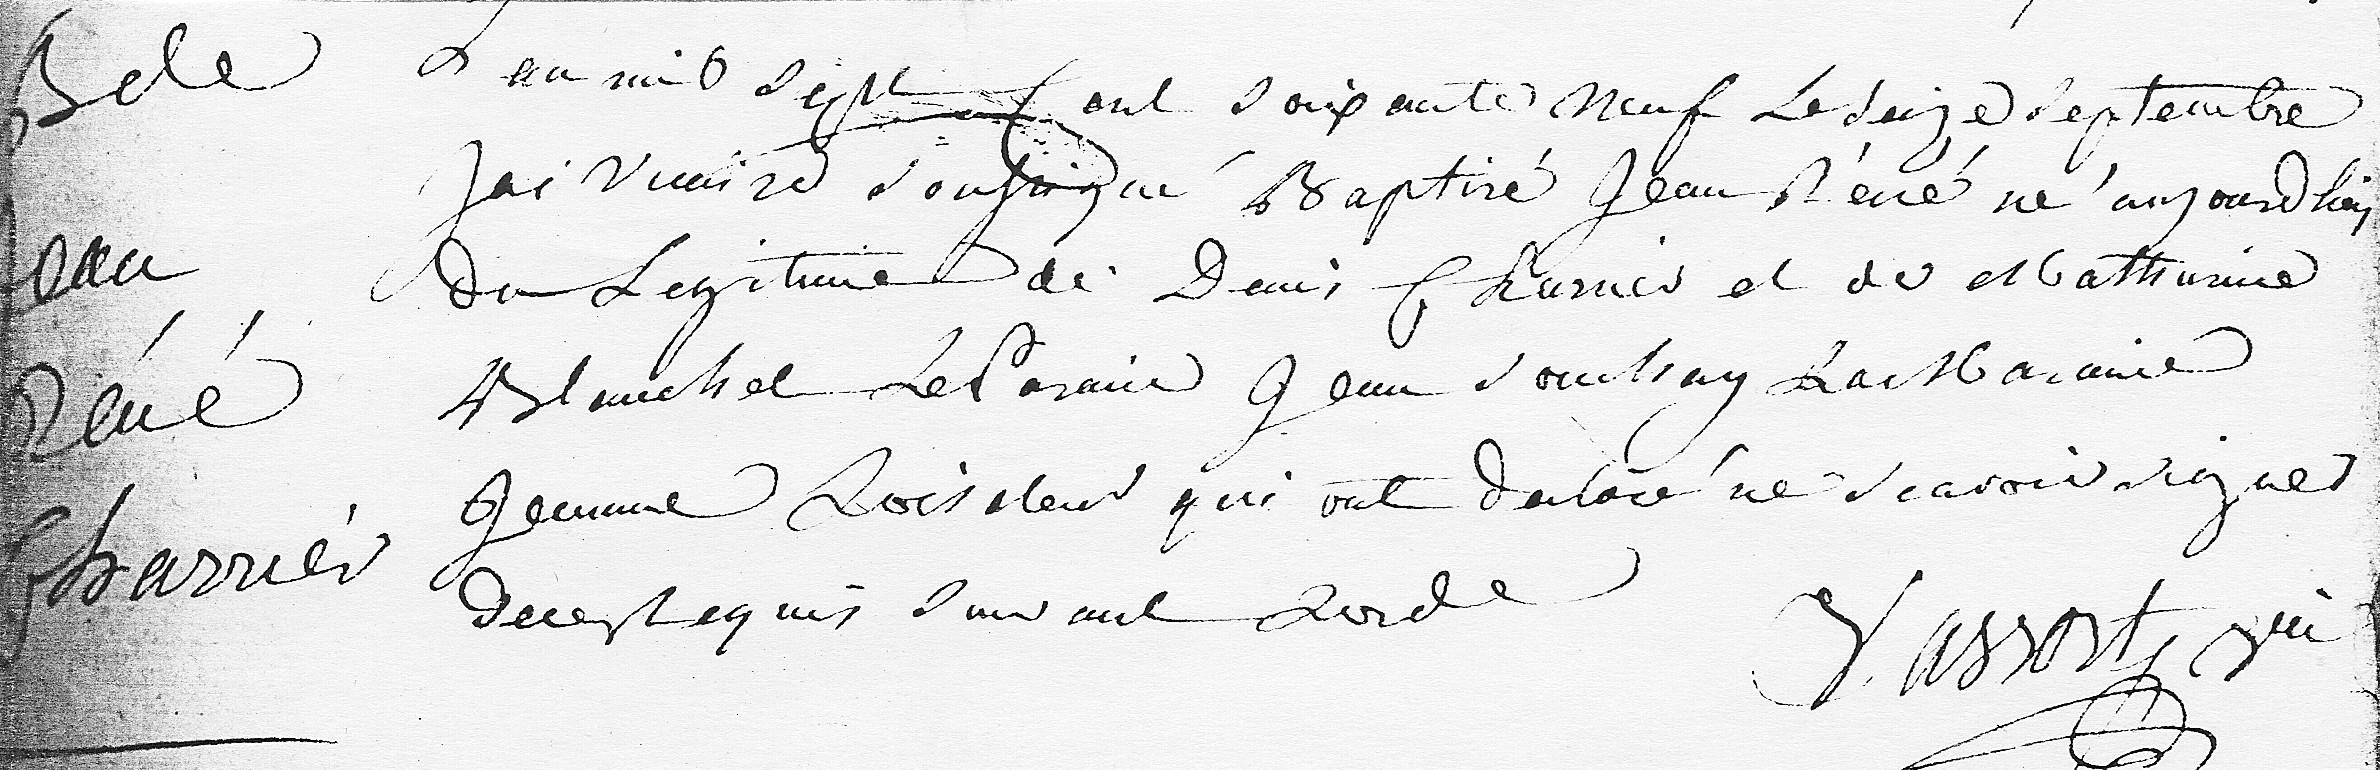 B de
Jean
Réné
Charrier
L an mil sept Cent soixante Neuf Le seize septembre
Jai vicaire soussigné Baptisé Jean Réné né aujourdhuy
du Legitime de Denis Charier et de Matthurine
Blanchet Le Parain Jean Souchay La Maraine
Jeanne Loiseleur qui ont declaré ne scavoir signer
de ce Requis suivant Lord
Vassort vic